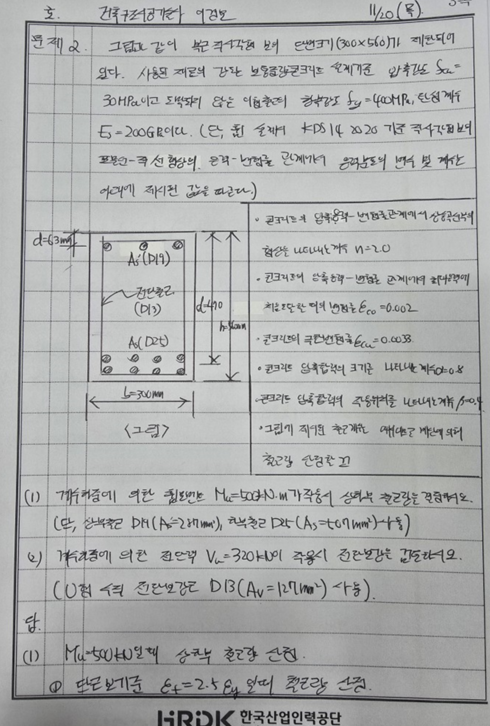 호. 건축구조 11/20(목)
문제2. 그림과 같이 복근 직사각형 보의 단면크기(300×560)가 제한되어
있다. 사용된 재료의 강도는 보통중량콘크리트 설계기준 압축강도 fck=
30MPa이고 도막되지 않은 이형철근의 항복강도 fy=400MPa, 탄성계수
Es=200GPa이다. (단, 휨 설계시 KDS 14 20 20 기준
포물선-직선 형상의 응력-변형률 관계에서 응력분포의 변수 및 계수는
아래에 제시된 값을 따른다.)
d'=63mm
As'(D19)
전단철근
(D13)
As(D25)
d=490
h=560mm
b=300mm
<그림>
• 콘크리트의 압축응력-변형률 관계에서 상승곡선부의
형상을 나타내는 계수 n=2.0
• 콘크리트의 압축응력-변형률 관계에서 최대응력에
처음 도달할 때의 변형률 εco=0.002
• 콘크리트의 극한변형률 εcu=0.0033
• 콘크리트 압축합력의 크기를 나타내는 계수 α=0.8
• 콘크리트 압축합력의 작용위치를 나타내는 계수 β=0.4
• 그림에 제시된 철근개수는
철근량 산정할 것
(1) 계수하중에 의한 휨모멘트 Mu=500kN·m가 작용시 상하부 철근량을 결정하시오.
(단, 상부철근 D19(As=287mm²), 하부철근 D25(As=507mm²)사용)
(2) 계수하중에 의한 전단력 Vu=320kN이 작용시 전단보강근을 결정하시오.
(U형 수직 전단보강근 D13(Av=127mm²) 사용).
답.
(1) Mu=500kN일때 상하부 철근량 산정.
① 단근보기준 εt=2.5εy일때 철근량 산정.
HRDK 한국산업인력공단